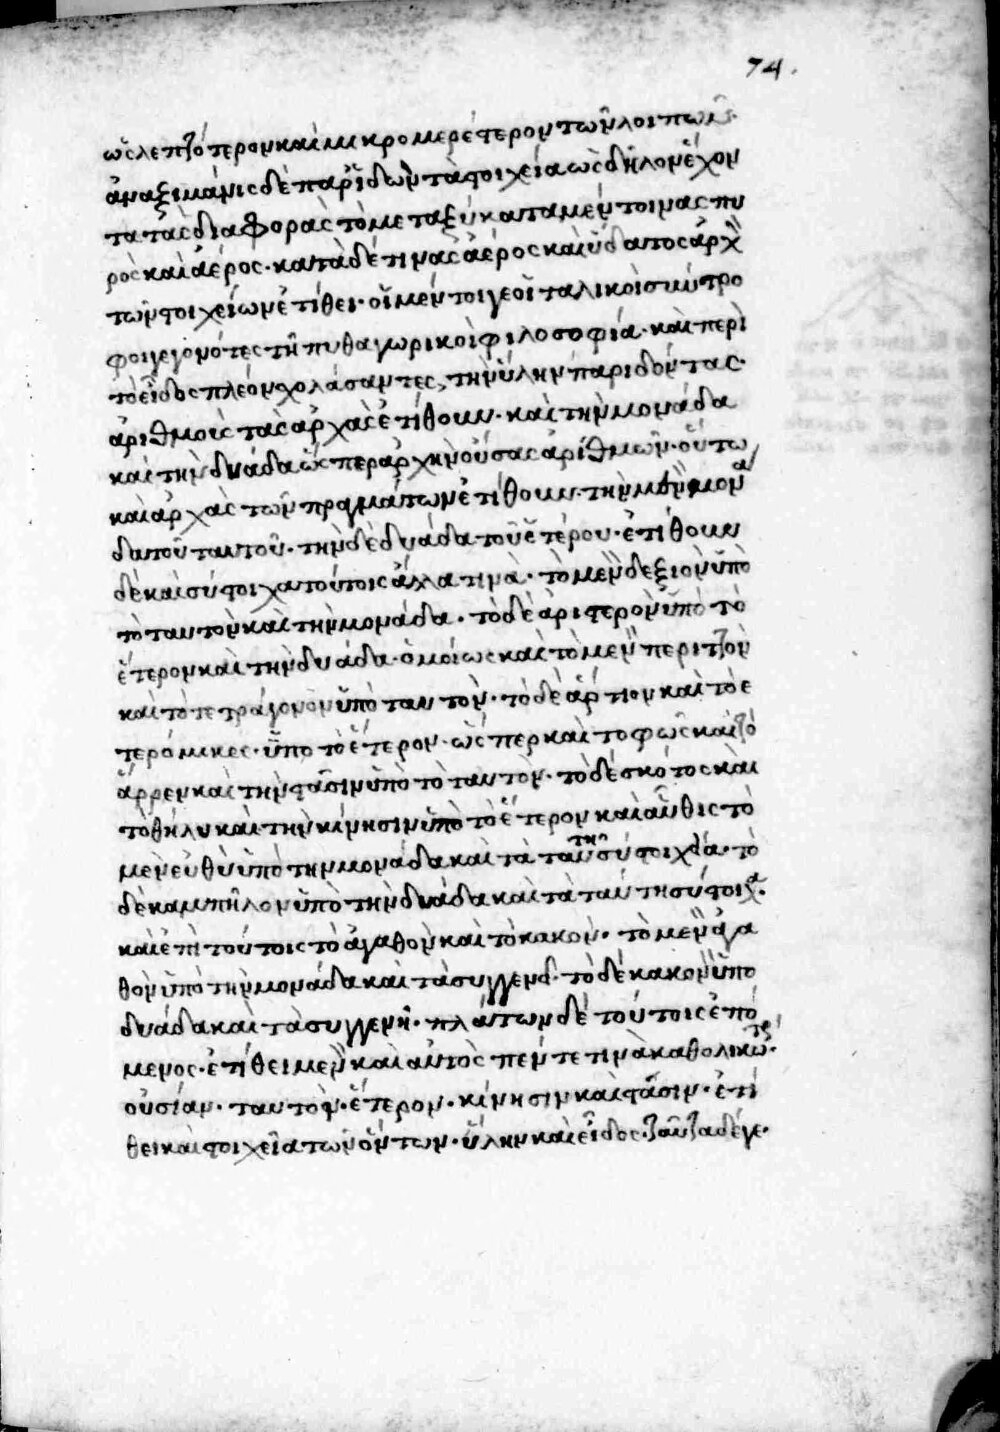 74.
ὡς λεπτότερον καὶ μικρομερέστερον τῶν λοιπῶν.
ἀναξιμάνις δὲ παρῐδὼν τὰ στοιχεία ὡς δῆλον ἔχον
τα τὰς διαφορὰς τὸ μεταξὺ κατα μέν τοινας πυ
ρὸς καὶ ἀέρος· κατὰ δέ τινας ἀέρος καὶ ὕδατος ἀρχὴν
τῶν στοιχείων ἐτίθει· οἱ μέν τοι γε οἱ ταλικοὶ σύντρο
φοι γεγονότες τῆ πυθαγωρικοὶ φιλοσοφία· καὶ περὶ
τὸ εἶδος πλέον χολάσαντες, τὴν ὕλην παριδόντας·
ἀριθμοὺς τὰς ἀρχὰς ἐτίθουν· καὶ τὴν μονάδα
καὶ τὴν δυάδα ὥσπερ ἀρχὴν οὔσας ἀρίθμῶν· οὕτω
καὶ ἀρχὰς τῶν πραγμάτων ἐτίθουν· τὴν μὲν μονά
δα τοῦ ταυτοῦ· τὴν δὲ δυάδα τοῦ ἑτέρου· ἐτίθουν
δὲ καὶ σύστοιχα τούτοις ἄλλα τινὰ· τὸ μὲν δεξιὸν ὑπὸ
τὸ ταυτὸν καὶ τὴν μονάδα· τὸ δὲ ἀριστερὸν ὑπὸ τὸ
ἕτερον καὶ τὴν δυάδα· ὁμοίως καὶ τὸ μὲν περιττὸν
καὶ τὸ τετράγονον ὑπὸ ταυτὸν· τὸ δὲ ἄρτιον καὶ τὸ ε
τερόμικες· ὑπο τὸ ἕτερον· ὥς περ καὶ το φῶς καὶ τὸ
ἄρρεν καὶ τὴν στάσιν ὑπὸ τὸ ταυτὸν· τὸ δὲ σκότος καὶ
τὸ θήλυ καὶ τὴν κίνησιν ὑπὸ τὸ ἕτερον καὶ αὖθις τὸ
μὲν εὐθὺ ὑπὸ τὴν μονάδα καὶ τὰ ταύτη σύστοιχα· τὸ
δὲ καμπῆλον ὑπὸ τὴν δυάδα καὶ τὰ ταύτη σύστοιχα.
καὶ ἐπὶ τούτοις τὸ ἀγαθὸν καὶ τὸ κακὸν· τὸ μὲν ἀγα
θὸν ὑπὸ τὴν μονάδα καὶ τὰ συγγενῆ· τὸ δὲ κακὸν ὑπο
δυάδα καὶ τὰ συγγενῆ· πλάτων δὲ τούτοις ἑπό
μενος· ἐτίθει μὲν καὶ αὐτὸς πέντε τινὰ καθολικώτερα·
οὐσίαν· ταυτὸν· ἕτερον· κίνησιν καὶ στάσιν· ἐτί
θει καὶ στοιχεῖα τῶν ὄντων· ὕλην καὶ εἶδος· ταῦτα δέ γε·